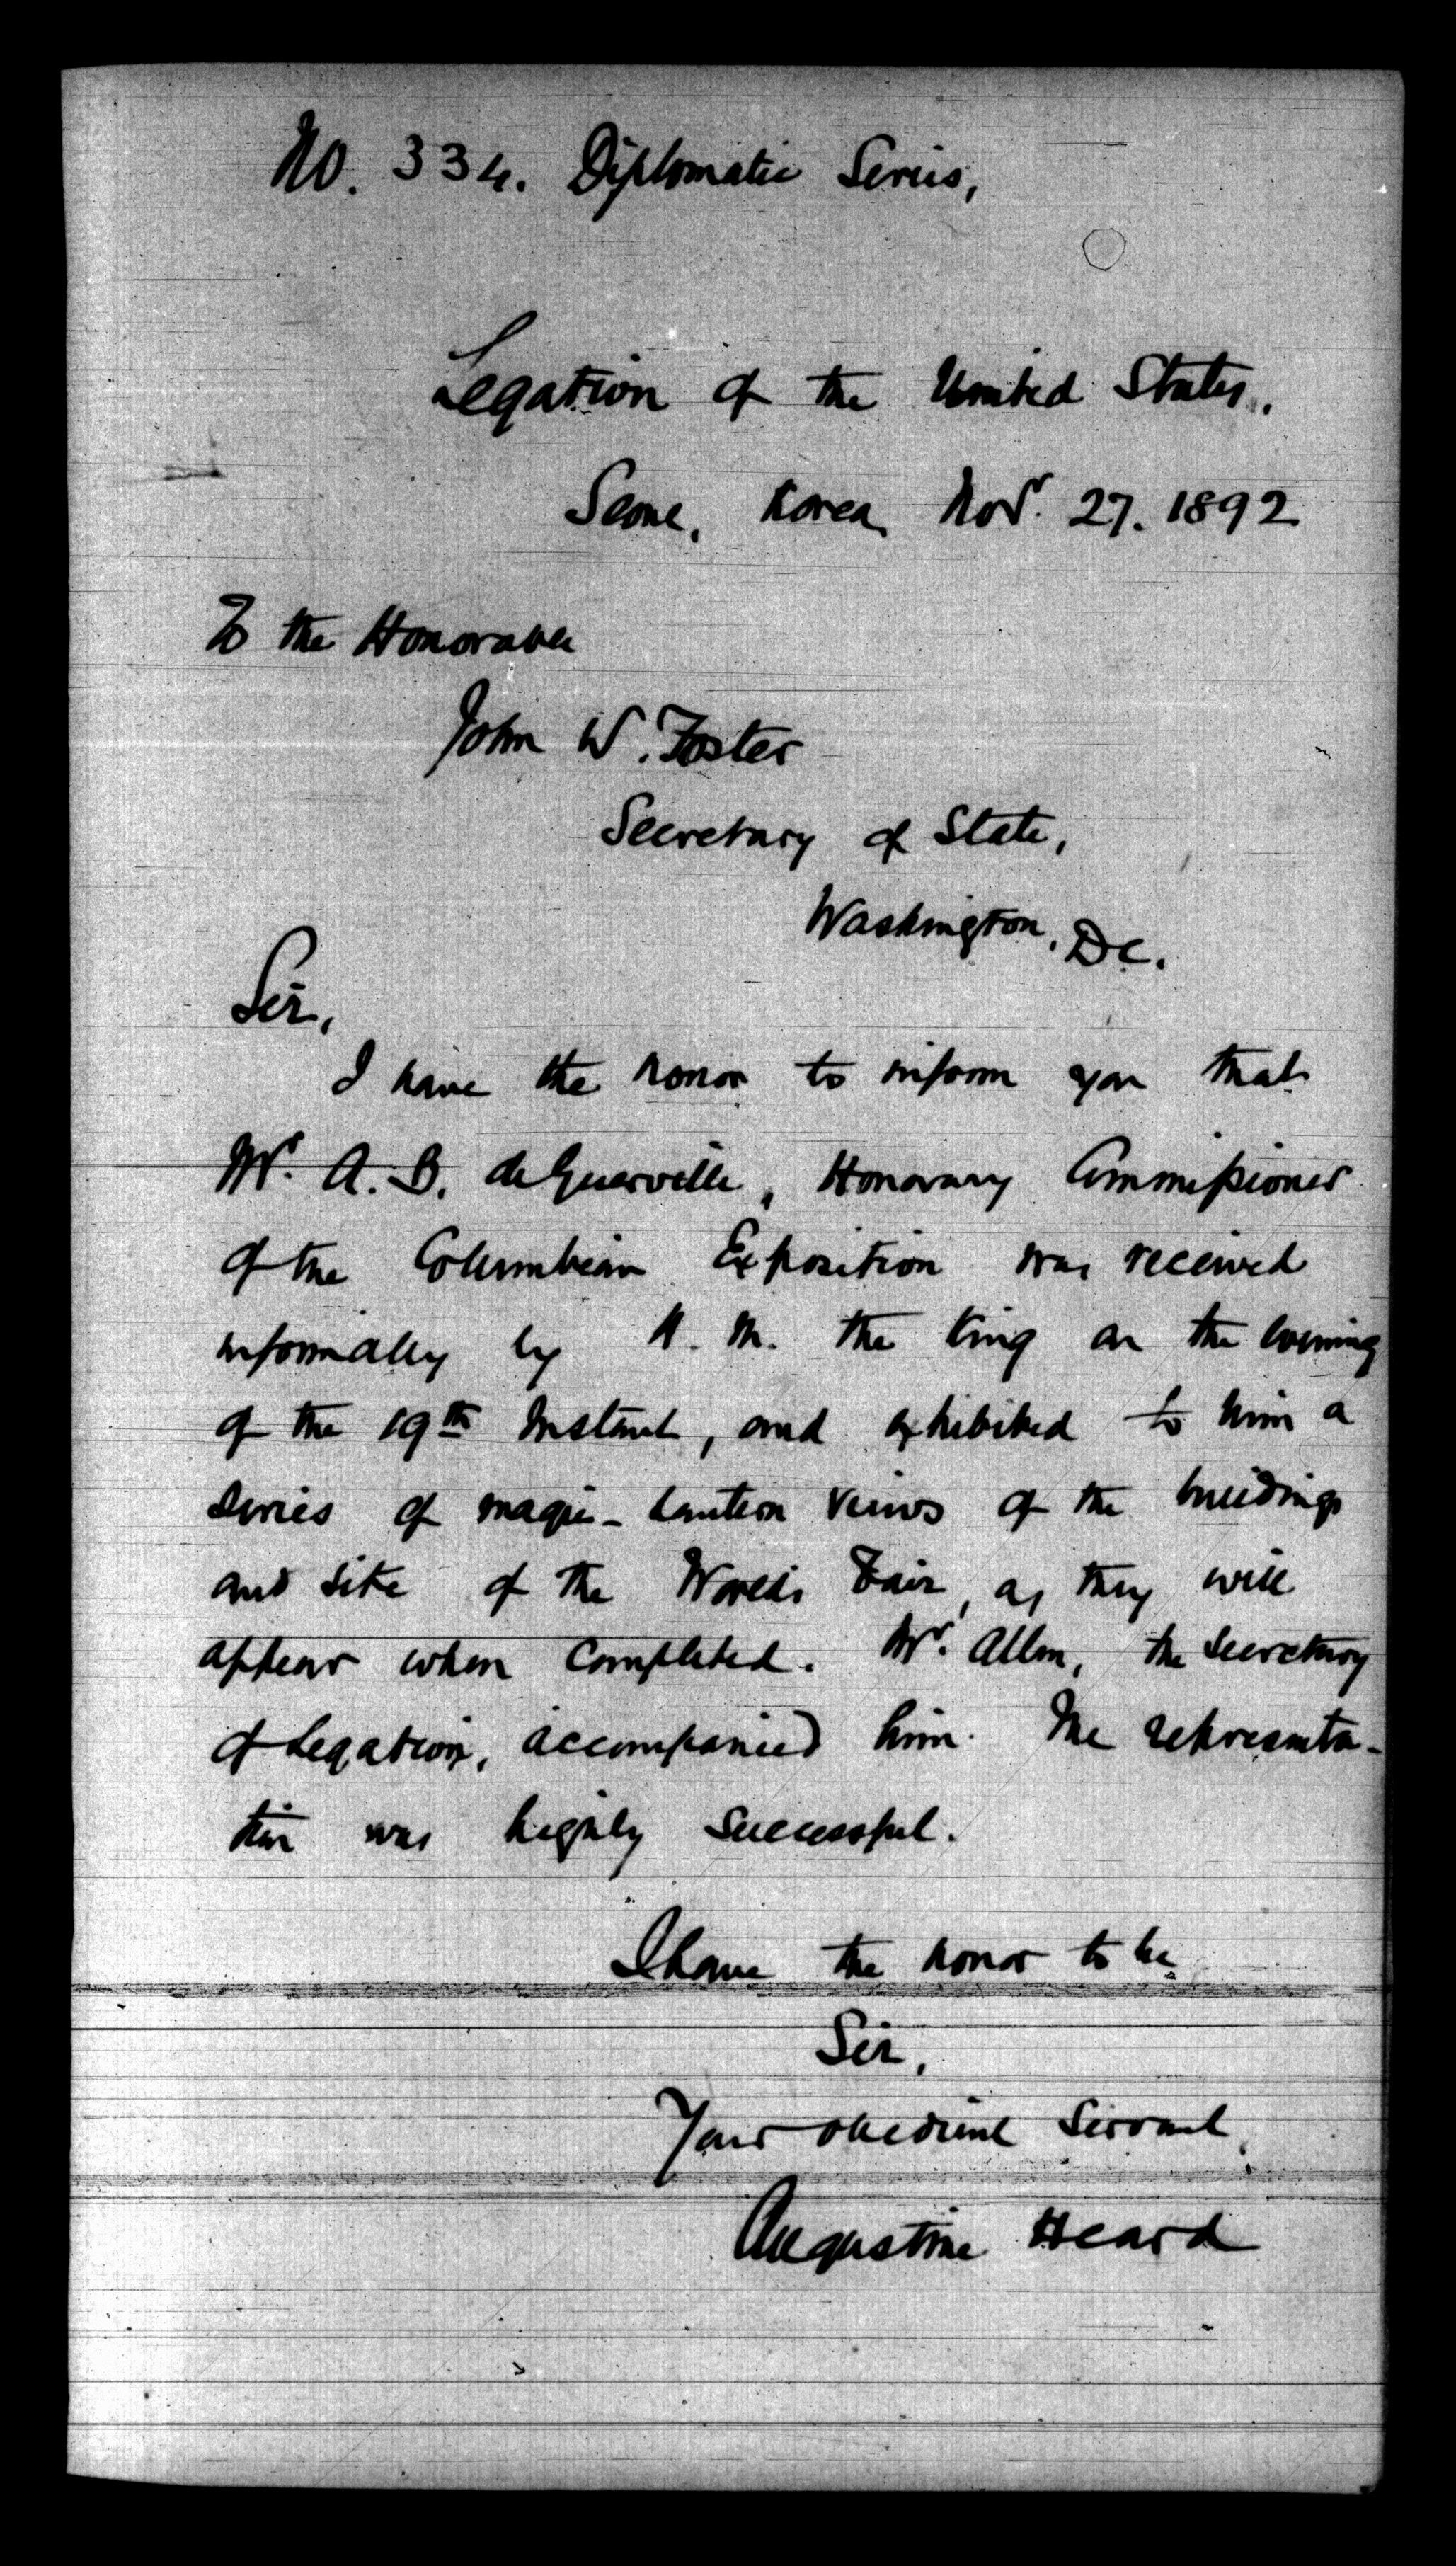 No. 334. Diplomatic Series,
Legation of the United States,
Seoul, Korea, Novr. 27. 1892
To the Honorable
John W. Foster
Secretary of State,
Washington, D.C.
Sir,
I have the honor to inform you that
Mr. A. B. de Guerville, Honorary Commissioner
of the Columbian Exposition was received
informally by H. M. the King on the evening
of the 19th Instant, and exhibited to him a
series of magic-lantern views of the buildings
and site of the World's Fair, as they will
appear when completed. Mr. Allen, the Secretary
of Legation, accompanied him. The representa-
tion was highly successful.
I have the honor to be
Sir,
Your obedient Servant,
Augustine Heard